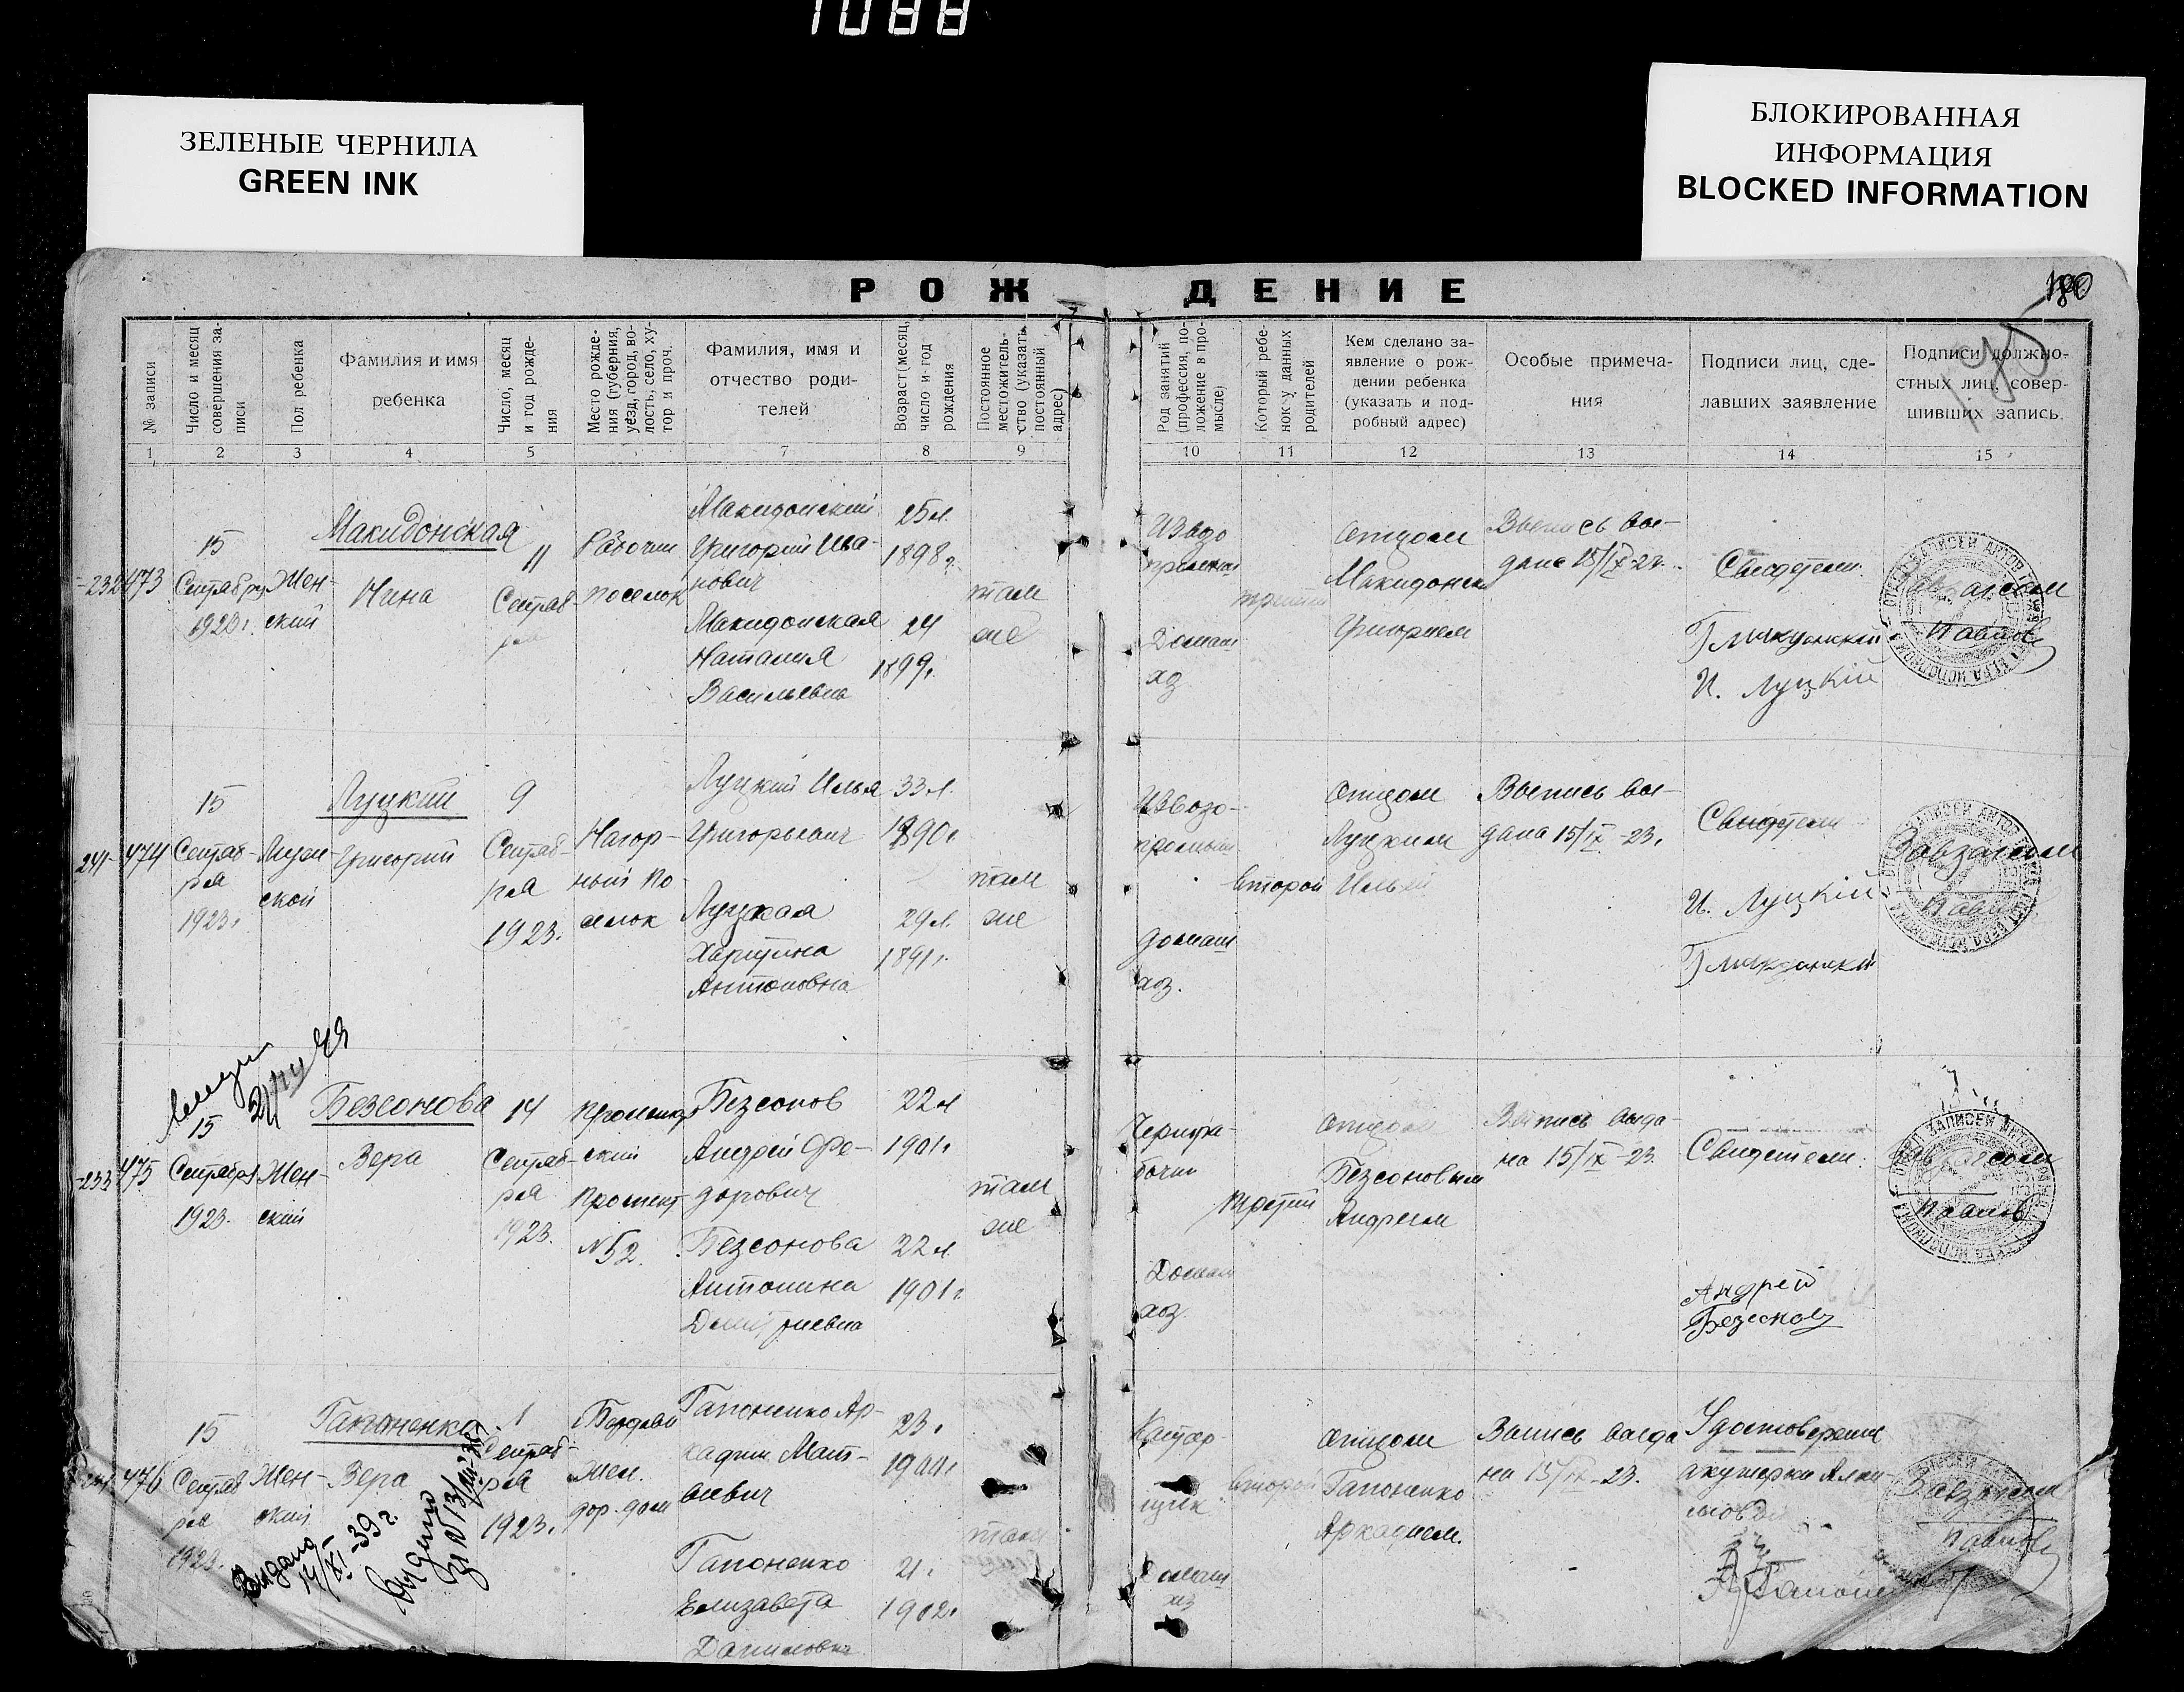 1088
ЗЕЛЕНЫЕ ЧЕРНИЛА
GREEN INK
БЛОКИРОВАННАЯ
ИНФОРМАЦИЯ
BLOCKED INFORMATION
РОЖДЕНИЕ
180
№ записи
Число и месяц
совершения за-
писи
Пол ребенка
Фамилия и имя
ребенка
Число, месяц
и год рожде-
ния
Место рожде-
ния (губерния,
уезд, город, во-
лость, село, ху-
тор и проч.
Фамилия, имя и
отчество роди-
телей
Возраст (месяц,
число и год
рождения
Постоянное
местожитель-
ство (указать
постоянный
адрес)
Род занятий
(профессия, по-
ложение в про-
мысле)
Который ребе-
нок у данных
родителей
Кем сделано за-
явление о рож-
дении ребенка
(указать и под-
робный адрес)
Особые примеча-
ния
Подписи лиц, сде-
лавших заявление
Подписи должно-
стных лиц, совер-
шивших запись.
1 2 3 4 5 7 8 9 10 11 12 13 14 15
232 473
15
1923г.
Жен-
ский
Макидонская
Нина
11
Сентяб-
ря
Рабочий
поселок
Макидонский
Григорий Ива-
нович
Макидонская
Наталия
Васильевна
25 л.
1898г.
24
1899г.
там
же
Извозо
промыш
Домаш
хоз
третий
отцом
Григорием
Выпись вы-
дана 15/IX-23.
Свидетели
И. Луцкiй
Завзагсом
Павлов
241 474
15
Сентяб-
ря
1923г.
Мужс-
ской
Луцкий
Григорий
9
Сентяб-
ря
1923г.
Нагор-
ный по-
селок
Луцкий Илья
Григорьевич
Луцкая
Харитина
Антоновна
33 л.
1890г
29 л.
1891г.
там
же
Извозо-
промыш.
домаш
хоз.
второй
отцом
Луцким
Ильей
Выпись вы-
дана 15/IX-23.
Свидетели
И. Луцкiй
Завзагсом
Павлов
233 475
15
Сентября
1923.
Жен-
ский
Безсонова
Вера
14
Сентяб-
ря
1923.
ский
проспект
№52.
Безсонов
Андрей Фе-
дорович
Безсонова
Антонина
Дмитриевна
22 л
1901г
22 л.
1901г.
там
же
Чернора-
бочий
Домаш
хоз.
третий
отцом
Безсоновым
Андреем
Выпись выда-
на 15/IX-23.
Свидетели:
Андрей
Безсонов
Завзагсом
Павлов
476
15
Сентяб
ря
1923.
Жен-
ский
Гапоненко
Вера
1
Сентяб-
ря
1923г.
Жел.
дор. дом
Гапоненко Ар-
кадий Мат-
веевич
Гапоненко
Елизавета
Даниловна
23г
1900г
21г
1902г
там
Домаш
хоз
второй
отцом
Гапоненко
Аркадием.
Выпись выда
на 15/IX-23.
Удостоверение
акушерки
Завзагсом
Павлов
Выдано
14/XI-39г.